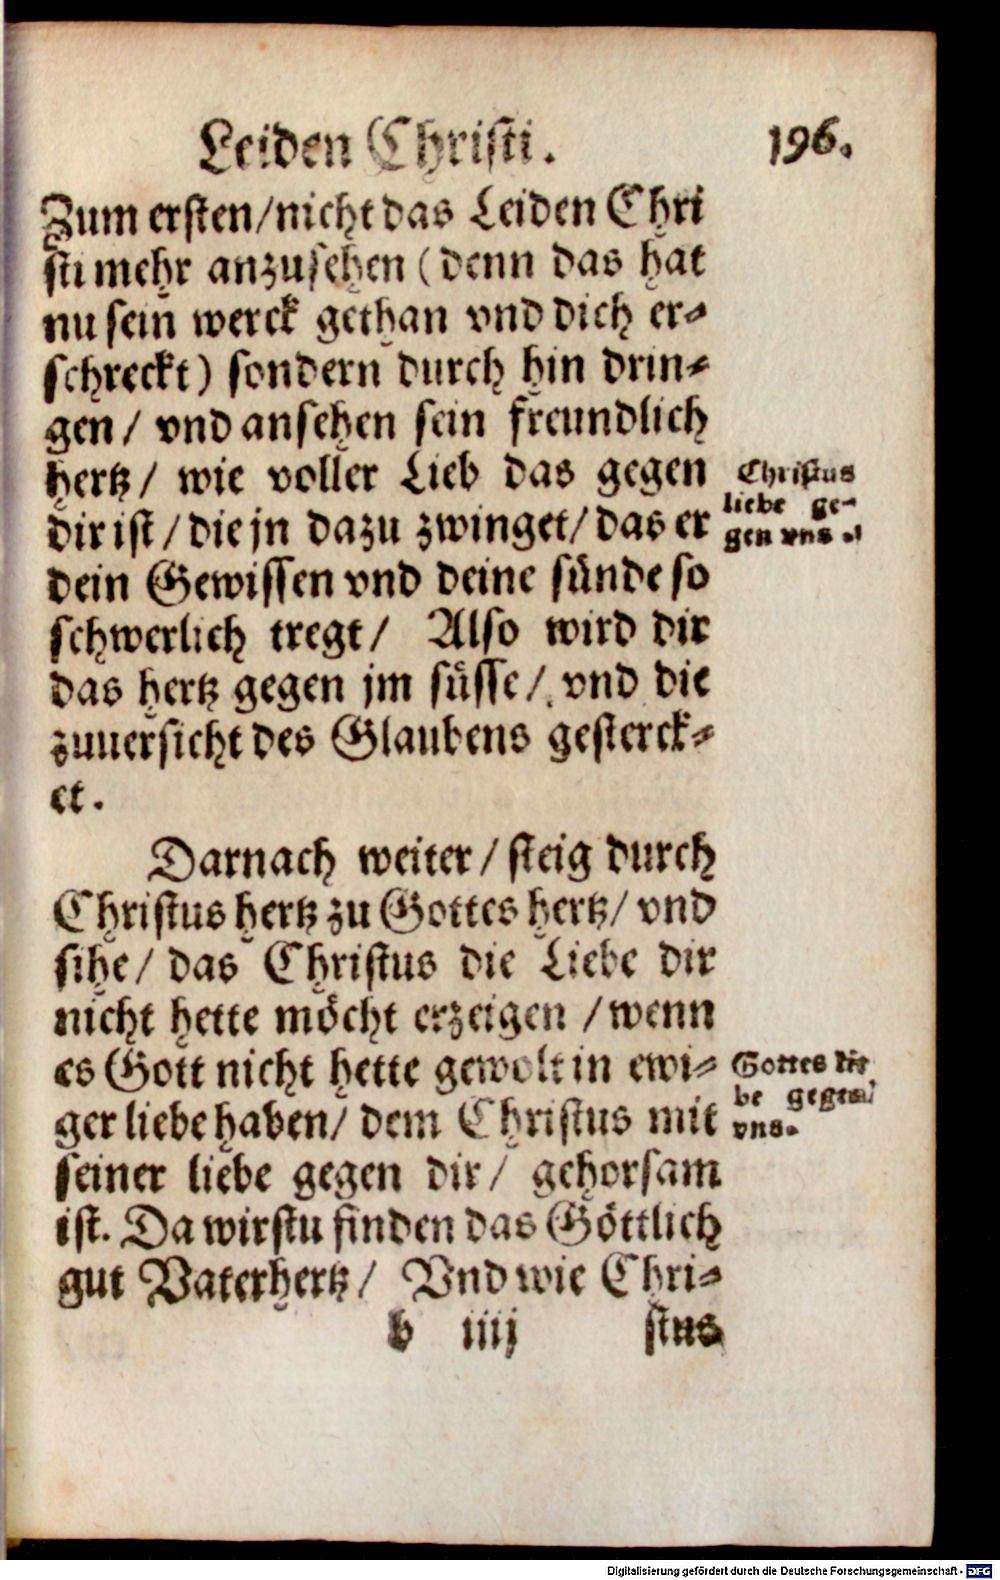 Leiden Christi. 196.
Zum ersten/nicht das Leiden Chri
sti mehr anzusehen (denn das hat
nu sein werck gethan vnd dich er⸗
schreckt) sondern durch hin drin⸗
gen/ vnd ansehen sein freundlich
hertz/ wie voller Lieb das gegen
dir ist/ die jn dazu zwinget/ das er
dein Gewissen vnd deine sünde so
schwerlich tregt/ Also wird dir
das hertz gegen jm süsse/ vnd die
zuuersicht des Glaubens gesterck⸗
et.
Christus
liebe ge⸗
gen vns
Darnach weiter/ steig durch
Christus hertz zu Gottes hertz/ vnd
sihe/ das Christus die Liebe dir
nicht hette möcht erzeigen /wenn
es Gott nicht hette gewolt in ewi⸗
ger liebe haben/ dem Christus mit
seiner liebe gegen dir/ gehorsam
ist. Da wirstu finden das Göttlich
gut Vaterhertz/ Vnd wie Chri⸗
Gottes lie
be gegen
vns.
b iiij stus
Digitalisierung gefördert durch die Deutsche Forschungsgemeinschaft - DFG